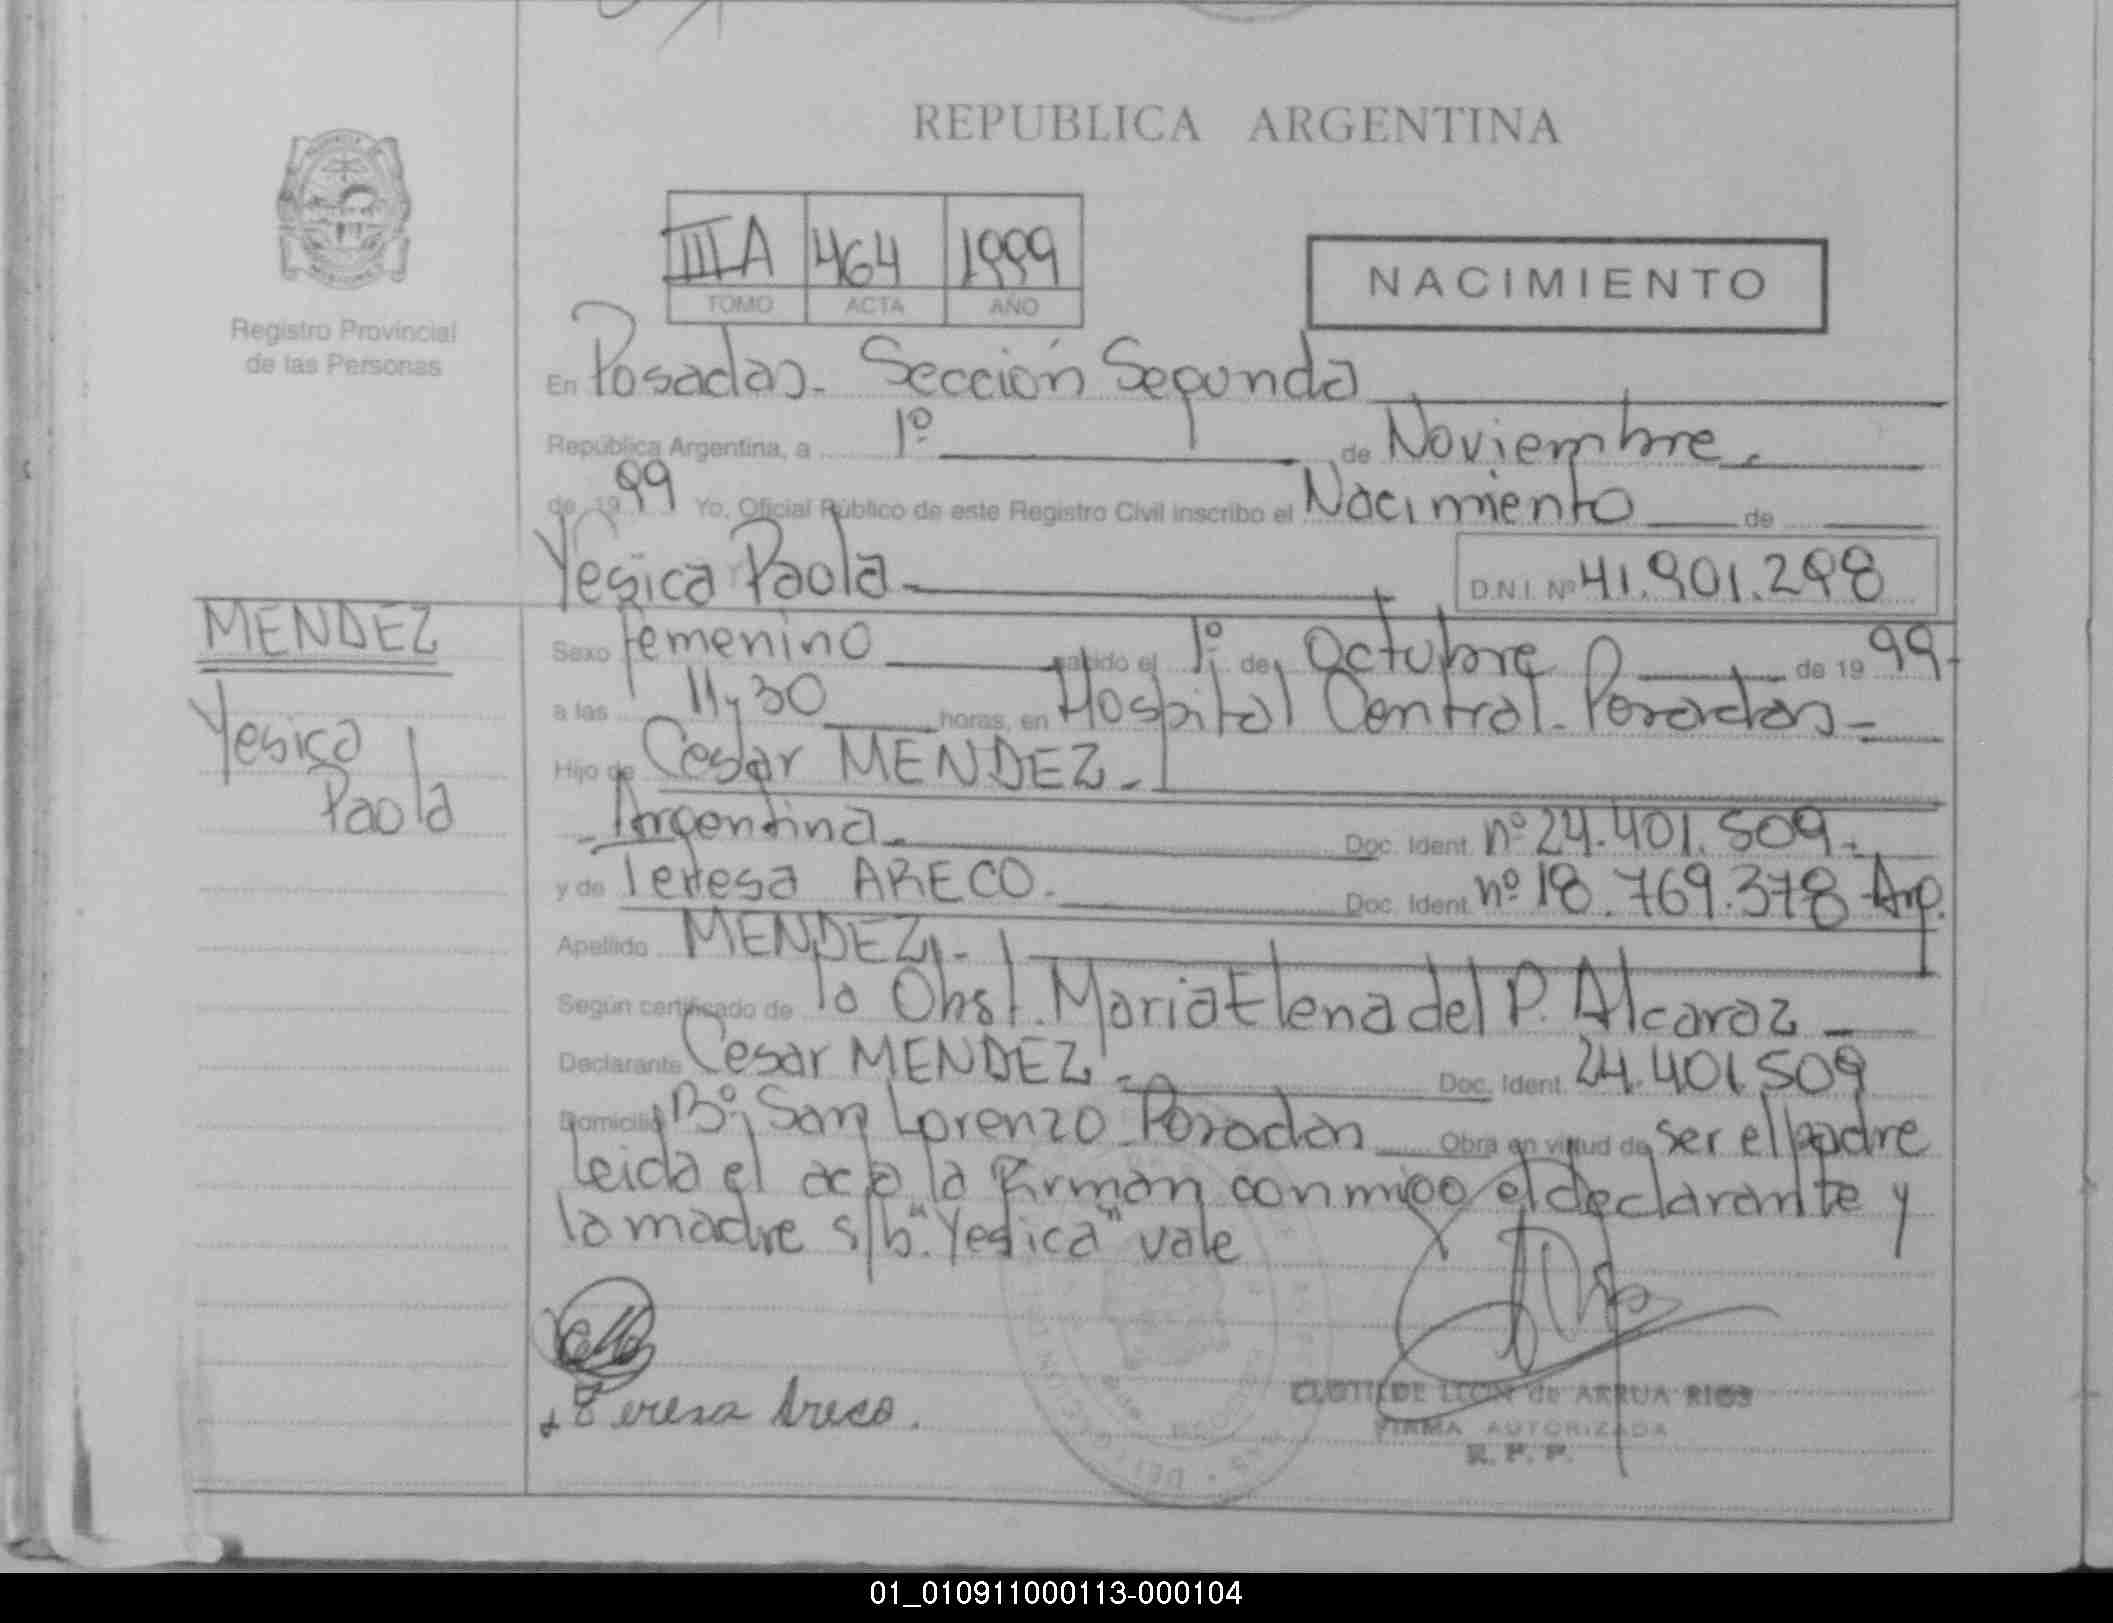 REPUBLICA ARGENTINA
IIIA 464 1999
TOMO ACTA AÑO
NACIMIENTO
Registro Provincial
de las Personas
En Posadas. Sección Segunda
República Argentina, a 1º de Noviembre.
de 1999 Yo, Oficial Público de este Registro Civil inscribo el Nacimiento de
Yesica Paola D.N.I. Nº 41.901.298
MENDEZ
Yesica
Paola
Sexo femenino nacido el 1º. de Octubre de 1999-
a las 11y30 horas, en Hospital Central. Posadas-
Hijo de Cesar MENDEZ.
Argentina. Doc. Ident. nº 24.401.509.
y de Teresa ARECO. Doc. Ident. nº 18.769.378 Arg.
Apellido MENDEZ.
Según certificado de la Obst. Maria Elena del P. Alcaraz
Declarante Cesar MENDEZ. Doc. Ident. 24.401.509
Domicilio Bº San Lorenzo Posadas Obra en virtud de ser el padre
leida el acta la firman conmigo el declarante y
la madre s/b. "Yesica" vale
Teresa Areco.
CLOTILDE LEON de ARRUA RIOS
FIRMA AUTORIZADA
R. P. P.
01_010911000113-000104